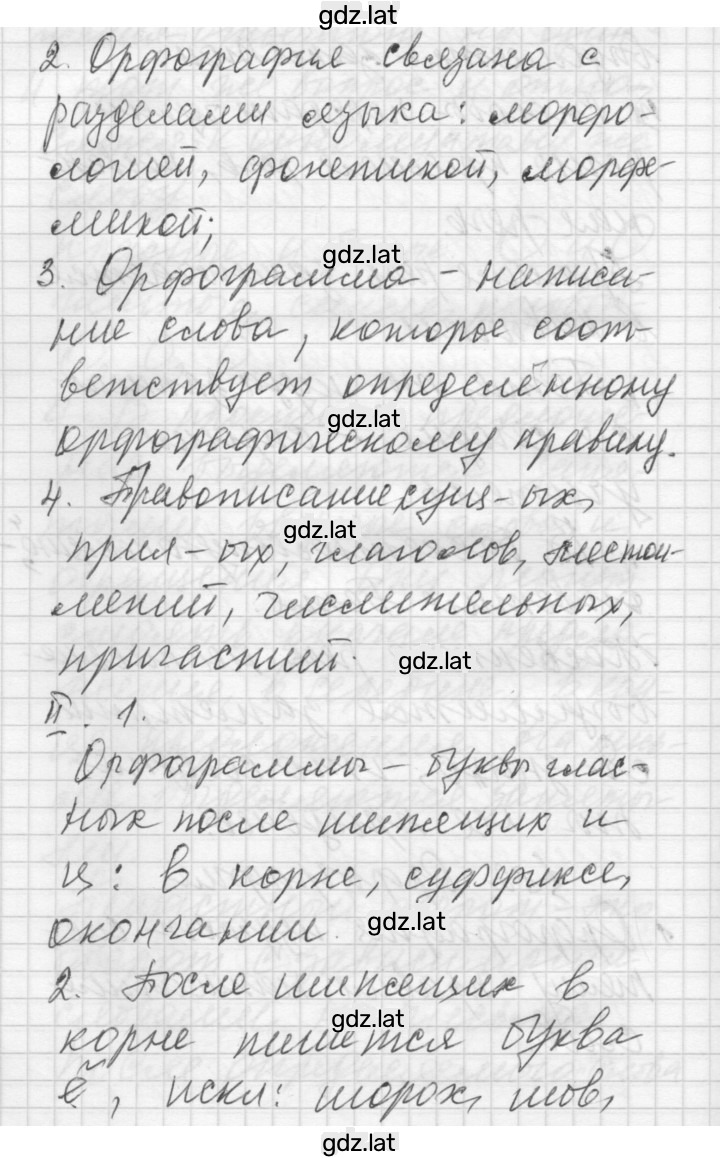 gdz.lat
2. Орфография связана с
разделами языка: морфо-
логией, фонетикой, морфе-
микой;
gdz.lat
3. Орфограмма - написа-
ние слова, которое соот-
ветствует определённому
gdz.lat
орфографическому правилу.
4. Правописание сущ-ых,
gdz.lat
прил-ых, глаголов, местои-
мений, числительных,
причастий.
gdz.lat
II. 1.
Орфограммы - буквы глас-
ных после шипящих и
ц: в корне, суффиксе,
окончании.
gdz.lat
2. После шипящих в
gdz.lat
корне пишется буква
ё, искл: шорох, шов,
gdz.lat